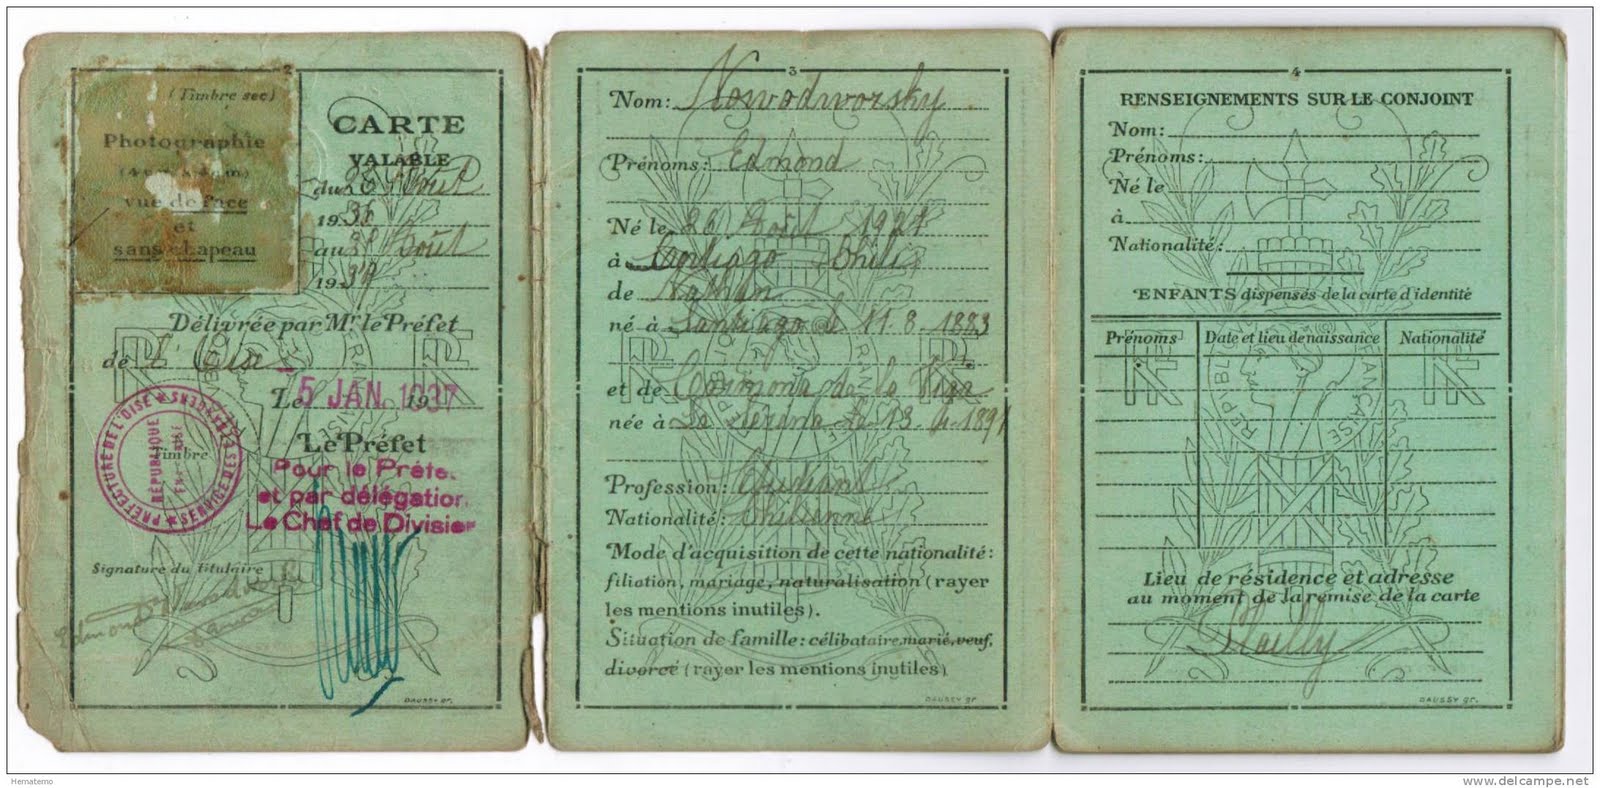 2
(Timbre sec)
Photographie
vue de face
et
sans chapeau
CARTE
VALABLE
du Août
1936
au Août
1939
Délivrée par Mr. le Préfet
de l'Oise
Le 5 JAN. 1937
Le Préfet
Pour le Préfet
et par délégation
Le Chef de Division
PREFECTURE DE L'OISE ★ SERVICE DES ETRANGERS ★
RÉPUBLIQUE
FRANÇAISE
Timbre
Signature du titulaire
Edmond
DAUSSY gr.
3
Nom: Nowodworsky
Prénoms: Edmond
Né le 26 Août 1921
à Santiago Chili
de Nathan
né à Santiago le 11.8.1883
et de Carmona de la
née à La Serena le 13.4.1891
Profession: Etudiant
Nationalité: Chilienne
Mode d'acquisition de cette nationalité:
filiation, mariage, naturalisation (rayer
les mentions inutiles).
Situation de famille: célibataire, marié, veuf,
divorcé (rayer les mentions inutiles)
RÉPUBLIQUE FRANÇAISE
RF RF
DAUSSY gr.
4
RENSEIGNEMENTS SUR LE CONJOINT
Nom:
Prénoms:
Né le
à
Nationalité:
ENFANTS dispensés de la carte d'identité
Prénoms Date et lieu de naissance Nationalité
RÉPUBLIQUE FRANÇAISE
RF RF
Lieu de résidence et adresse
au moment de la remise de la carte
DAUSSY gr.
Hematemo
www.delcampe.net